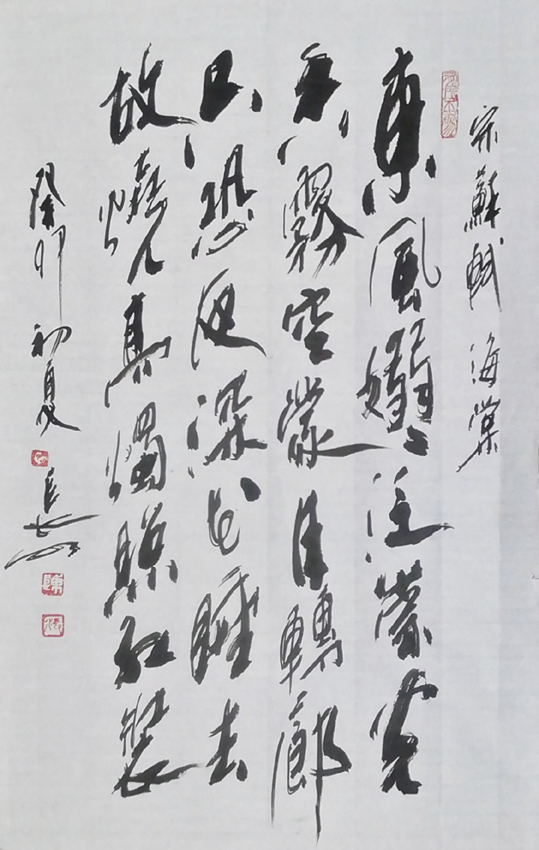 宋蘇軾海棠
東風嫋〻泛崇光
香霧空蒙月轉廊
只恐夜深花睡去
故燒高燭照紅裝
癸卯初夏 長
陳